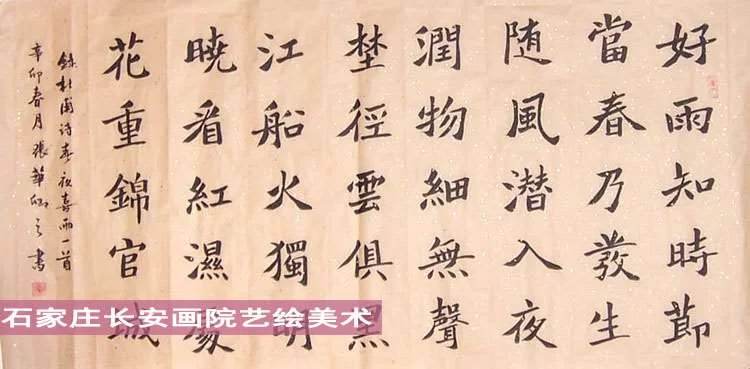 好雨知時節
當春乃發生
随風潜入夜
潤物細無聲
埜徑雲俱黑
江船火獨明
曉看紅濕處
花重錦官城
錄杜甫诗春夜喜雨一首
辛卯春月張華之書
石家庄长安画院艺绘美术